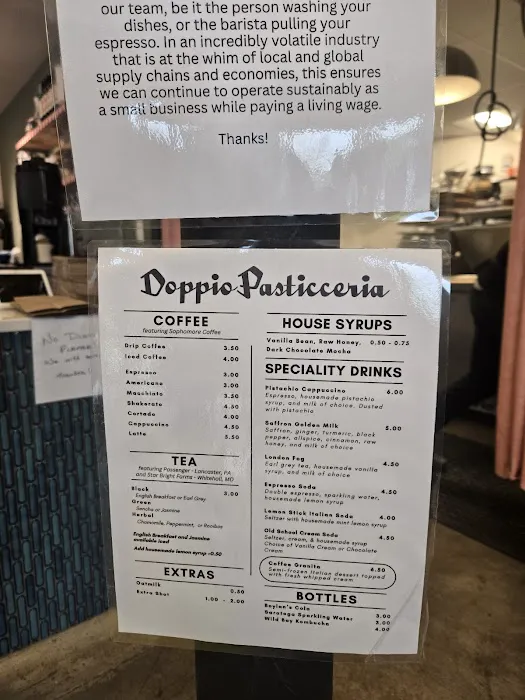 our team, be it the person washing your
dishes, or the barista pulling your
espresso. In an incredibly volatile industry
that is at the whim of local and global
supply chains and economies, this ensures
we can continue to operate sustainably as
a small business while paying a living wage.
Thanks!
Doppio Pasticceria
COFFEE
featuring Sophomore Coffee
Drip Coffee 3.50
Iced Coffee 4.00
Espresso 3.00
Americano 3.00
Macchiato 3.50
Shakerato 4.50
Cortado 4.00
Cappuccino 4.50
Latte 5.50
TEA
featuring Passenger - Lancaster, PA
and Star Bright Farms - Whitehall, MD
Black 3.00
English Breakfast or Earl Grey
Green
Sencha or Jasmine
Herbal
Chamomile, Peppermint, or Rooibos
English Breakfast and Jasmine
available iced
Add housemade lemon syrup +0.50
EXTRAS
Oatmilk 0.50
Extra Shot 1.00 - 2.00
HOUSE SYRUPS
Vanilla Bean, Raw Honey, 0.50 - 0.75
Dark Chocolate Mocha
SPECIALITY DRINKS
Pistachio Cappuccino 6.00
Espresso, housemade pistachio
syrup, and milk of choice. Dusted
with pistachio
Saffron Golden Milk 5.00
Saffron, ginger, turmeric, black
pepper, allspice, cinnamon, raw
honey, and milk of choice
London Fog 4.50
Earl grey tea, housemade vanilla
syrup, and milk of choice
Espresso Soda 4.50
Double espresso, sparkling water,
housemade lemon syrup
Lemon Stick Italian Soda 4.00
Seltzer with housemade mint lemon syrup
Old School Cream Soda 4.50
Seltzer, cream, & housemade syrup
Choice of Vanilla Cream or Chocolate
Cream
Coffee Granita 6.50
Semi-frozen Italian dessert topped
with fresh whipped cream
BOTTLES
Boylan's Cola 3.00
Saratoga Sparkling Water 3.00
Wild Bay Kombucha 4.00